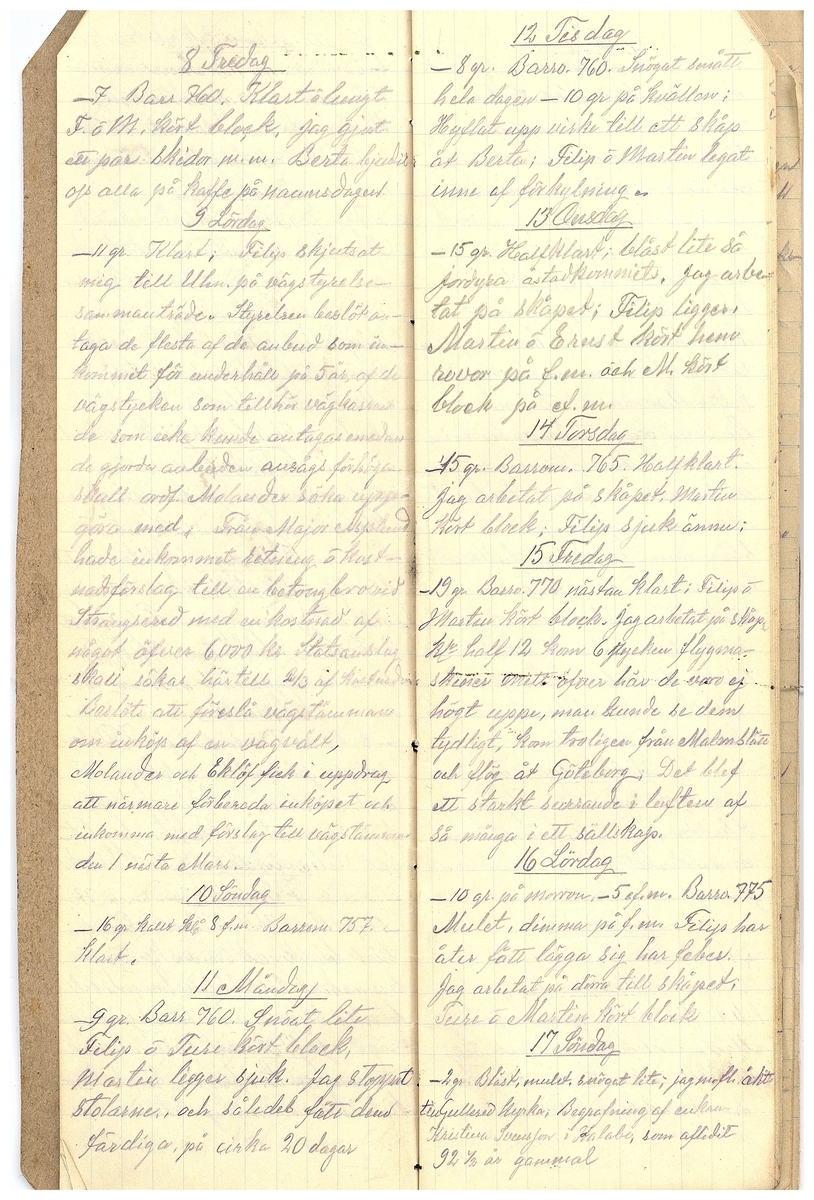 8 Fredag
–7 Barr 760. Klart ö lungt
F. ö M. kört block, jag gjort
ett par skidor m.m. Berta bjudit
oss alla på kaffe på namnsdagen
9 Lördag
–11 gr. Klart; Filip skjutsat
mig till Ulm. på vägstyrelse–
sammanträde. Styrelsen beslöt an–
taga de flesta af de anbud som in–
kommit för underhåll på 5 år, af de
vägstycken som tillhör vägkassan
de som icke kunde antagas emedan
de gjorda anbuden ansågs förhöga
skall ordf. Molander söka upp–
göra med; Från Major
hade inkommet ritning ö kost–
nadsförslag till en betongbro vid
Strängsered med en kostnad af
något öfver 6000 kr. Statsanslag
skall sökas härtill 2/3 af kostnaden
Beslöts att föreslå vägstämman
om inköp af en vägvält,
Molander och Eklöf fick i uppdrag
att närmare förbereda inköpet och
inkomma med förslag till vägstämman
den 1 nästa Mars.
10 Söndag
–16 gr kallt kl. 8 f.m. Barrom 757.
Klart.
11 Måndag
–9 gr. Barr 760. Snöat lite
Filip ö Ture kört block,
Martin ligger sjuk. Jag stoppat
stolarne, och således fått dem
färdiga, på cirka 20 dagar
12 Tisdag
–8 gr. Barro. 760. Snögat smått
hela dagen –10 gr på kvällen;
Hyflat upp virke till ett skåp
åt Berta; Filip ö Martin legat
inne af förkylning.
13 Onsdag
–15 gr. Halfklart; blåst lite så
jordyra åstadkommits. Jag arbe–
tat på skåpet; Filip ligger.
Martin ö Ernst kört hem
rovor på f.m. och M. kört
block på ef.m.
14 Torsdag
–15 gr. Barrom. 765. Halfklart.
Jag arbetat på skåpet. Martin
kört block; Filip sjuk ännu;
15 Fredag
–19 gr. Barro. 770 nästan klart; Filip ö
Martin kört block. Jag arbetat på skåpet
kl. half 12 kom 6 stycken flygma–
skiner midt öfver här de voro ej
högt uppe, man kunde se dem
tydligt, kom troligen från Malmslätt
och flög åt Göteborg; Det blef
ett starkt surrande i luften af
så många i ett sällskap.
16 Lördag
–10 gr. på morron, –5 ef.m. Barro. 775
Mulet, dimma på f.m. Filip har
åter fått lägga sig har feber.
Jag arbetat på dörra till skåpet;
Ture ö Martin kört block
17 Söndag
–2 gr. Blåst, mulet. snögat lite; jag m.fl. åkt
till Gullered kyrka; Begrafning af enkan
Kristina Svensson i Kalabo, som aflidit
92 ½ år gammal